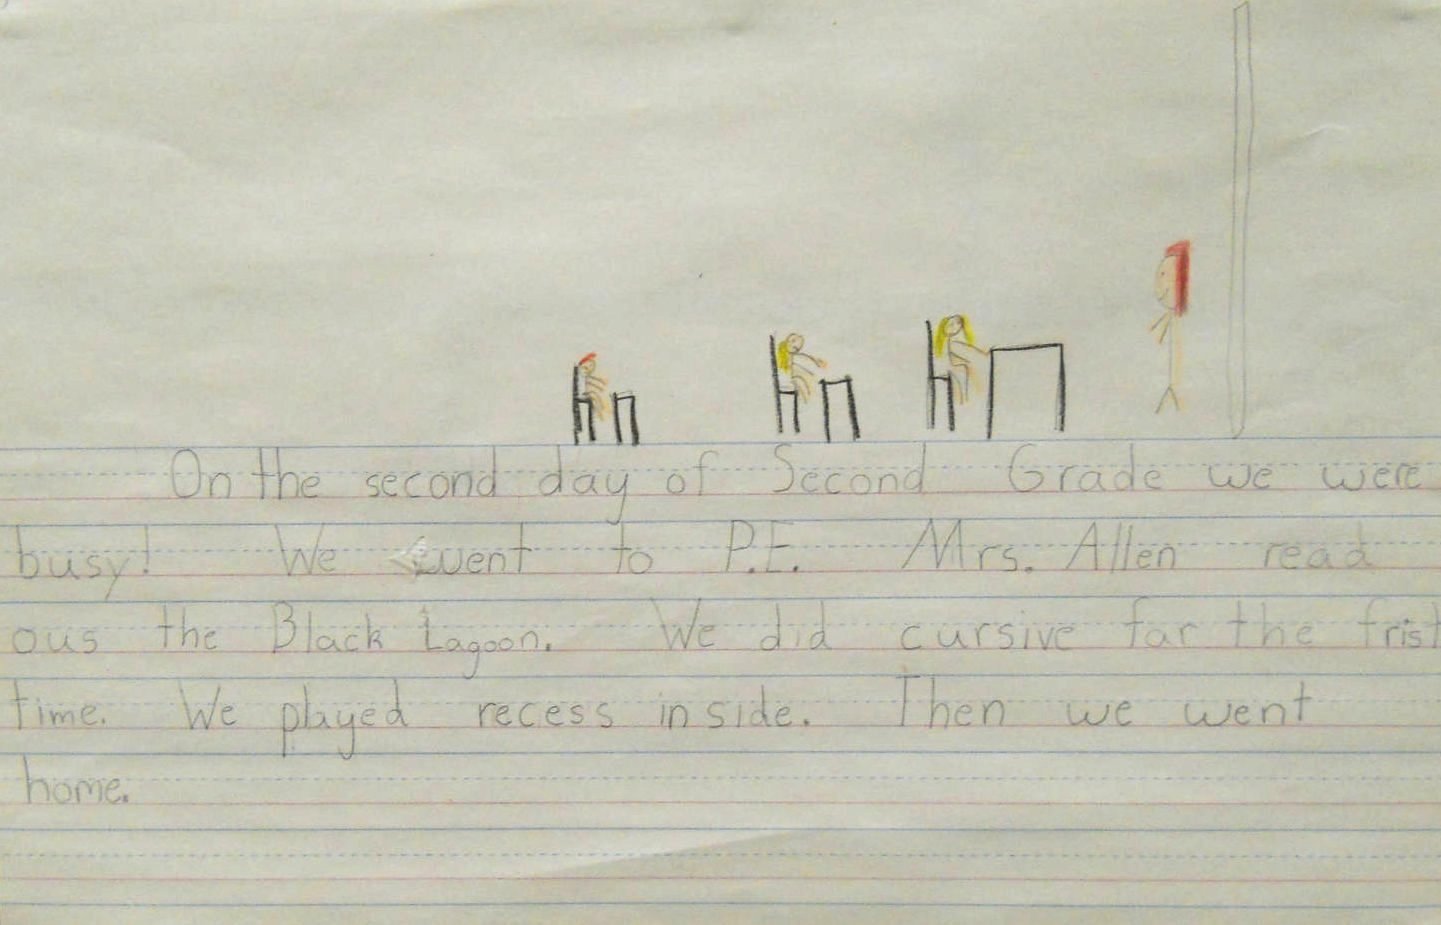 On the second day of Second Grade we were
busy! We went to P.E. Mrs. Allen read
ous the Black Lagoon. We did cursive far the frist
time. We played recess inside. Then we went
home.